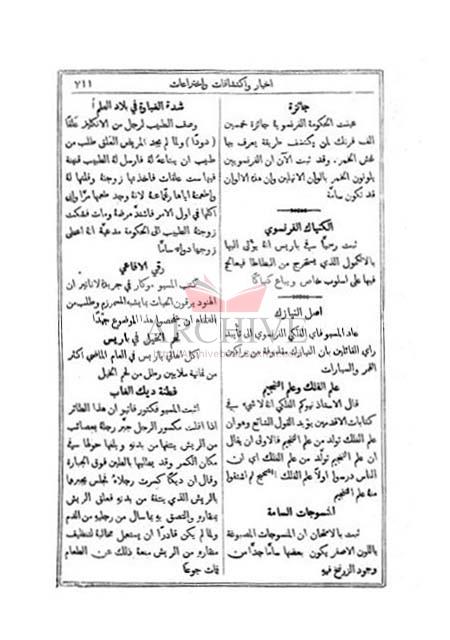 اخبار واكتشافات واختراعات
٧١١
جائزة
عينت الحكومة الفرنسوية جائزة خمسين
الف فرنك لمن يكتشف طريقة يعرف بها
غش الخمر. وقد ثبت الآن ان الفرنسويين
يلونون الخمر بالوان الانيلين وان هذه الالوان
قد تكون سامّة
الكنياك الفرنسوي
ثبت رسميًّا في باريس انه يؤتى اليها
بالالكحول الذي يستخرج من البطاطا فيعالج
فيها على اسلوب خاص ويباع كنياكًا
اصل النيازك
عاد المسيو فاي الفلكي الفرنسوي الى تأييد
رأي القائلين بان النيازك مقذوفة من براكين
القمر والسيارات
علم الفلك وعلم التنجيم
قال الاستاذ نيوكم الفلكي انه لا شيء في
كتابات الاقدمين يؤيد القول الشائع وهو ان
علم الفلك تولد من علم التنجيم فالاولى ان يقال
ان علم التنجيم تولد من علم الفلك اي ان
الناس درسوا اولاً علم الفلك الصحيح ثم اشتقوا
منه علم التنجيم
المنسوجات السامة
ثبت بالامتحان ان المنسوجات المصبوغة
باللون الاصفر يكون بعضها سامًّا جدًّا من
وجود الزرنيخ فيه
شدة الغباوة في بلاد العلم
وصف الطبيب لرجل من الانكليز علقًا
(دودًا) ولما لم يجد المريض العلق طلب من
طبيب ان يبتاعه له فارسل له الطبيب قنينة
فيها ست علقات فاخذتها زوجته وقلتها له
واطعمته اياها رغمًا عنه لانه وجد طعمها مرًّا وابى
اكلها في اول الامر فاشتد مرضه ومات فشكت
زوجته الطبيب الى الحكومة مدعية انه اعطى
زوجها دواء سامًّا
رقي الافاعي
كتب المسيو موكار في جريدة لاناتير ان
الهنود يرقون الحيات بما يشبه المسمرزم وطلب من
العلماء ان يفحصوا هذا الموضوع جيدًا
لحم الخيل في باريس
اكل اهالي باريس في العام الماضي اكثر
من ثمانية ملايين رطل من لحم الخيل
فطنة ديك الغاب
اثبت المسيو فكتور فاتيو ان هذا الطائر
اذا افلت مكسور الرجل جبر رجله بعصائب
من الريش ينتفها من بدنه و يلفها حولها في
مكان الكسر وقد يطليها بالطين فوق الجبارة
وقال ان ديكًا كسرت رجلاه فجبرها
بالريش الذي نتفه من بدنه فعلق الريش
بمنقاره والتصق به بما سال من رجليه من الدم
ولما لم يكن قادرًا ان يستعمل مخالبه لتنظيف
منقاره من الريش منعه ذلك عن الطعام
فمات جوعًا
ARCHIVE